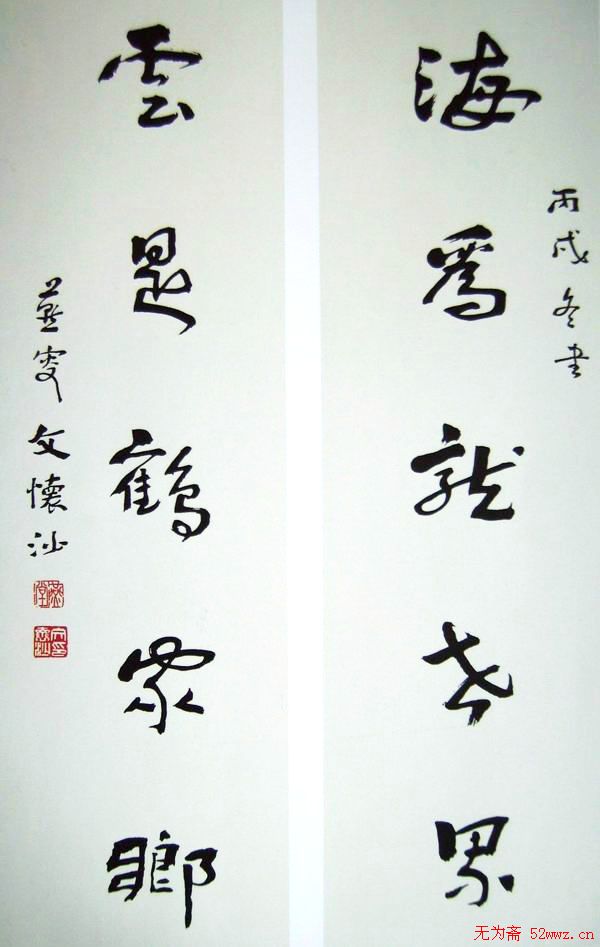 丙戌冬書
海為龍世界
雲是鶴家鄉
燕叟文懷沙
无为斋 52wwz.cn